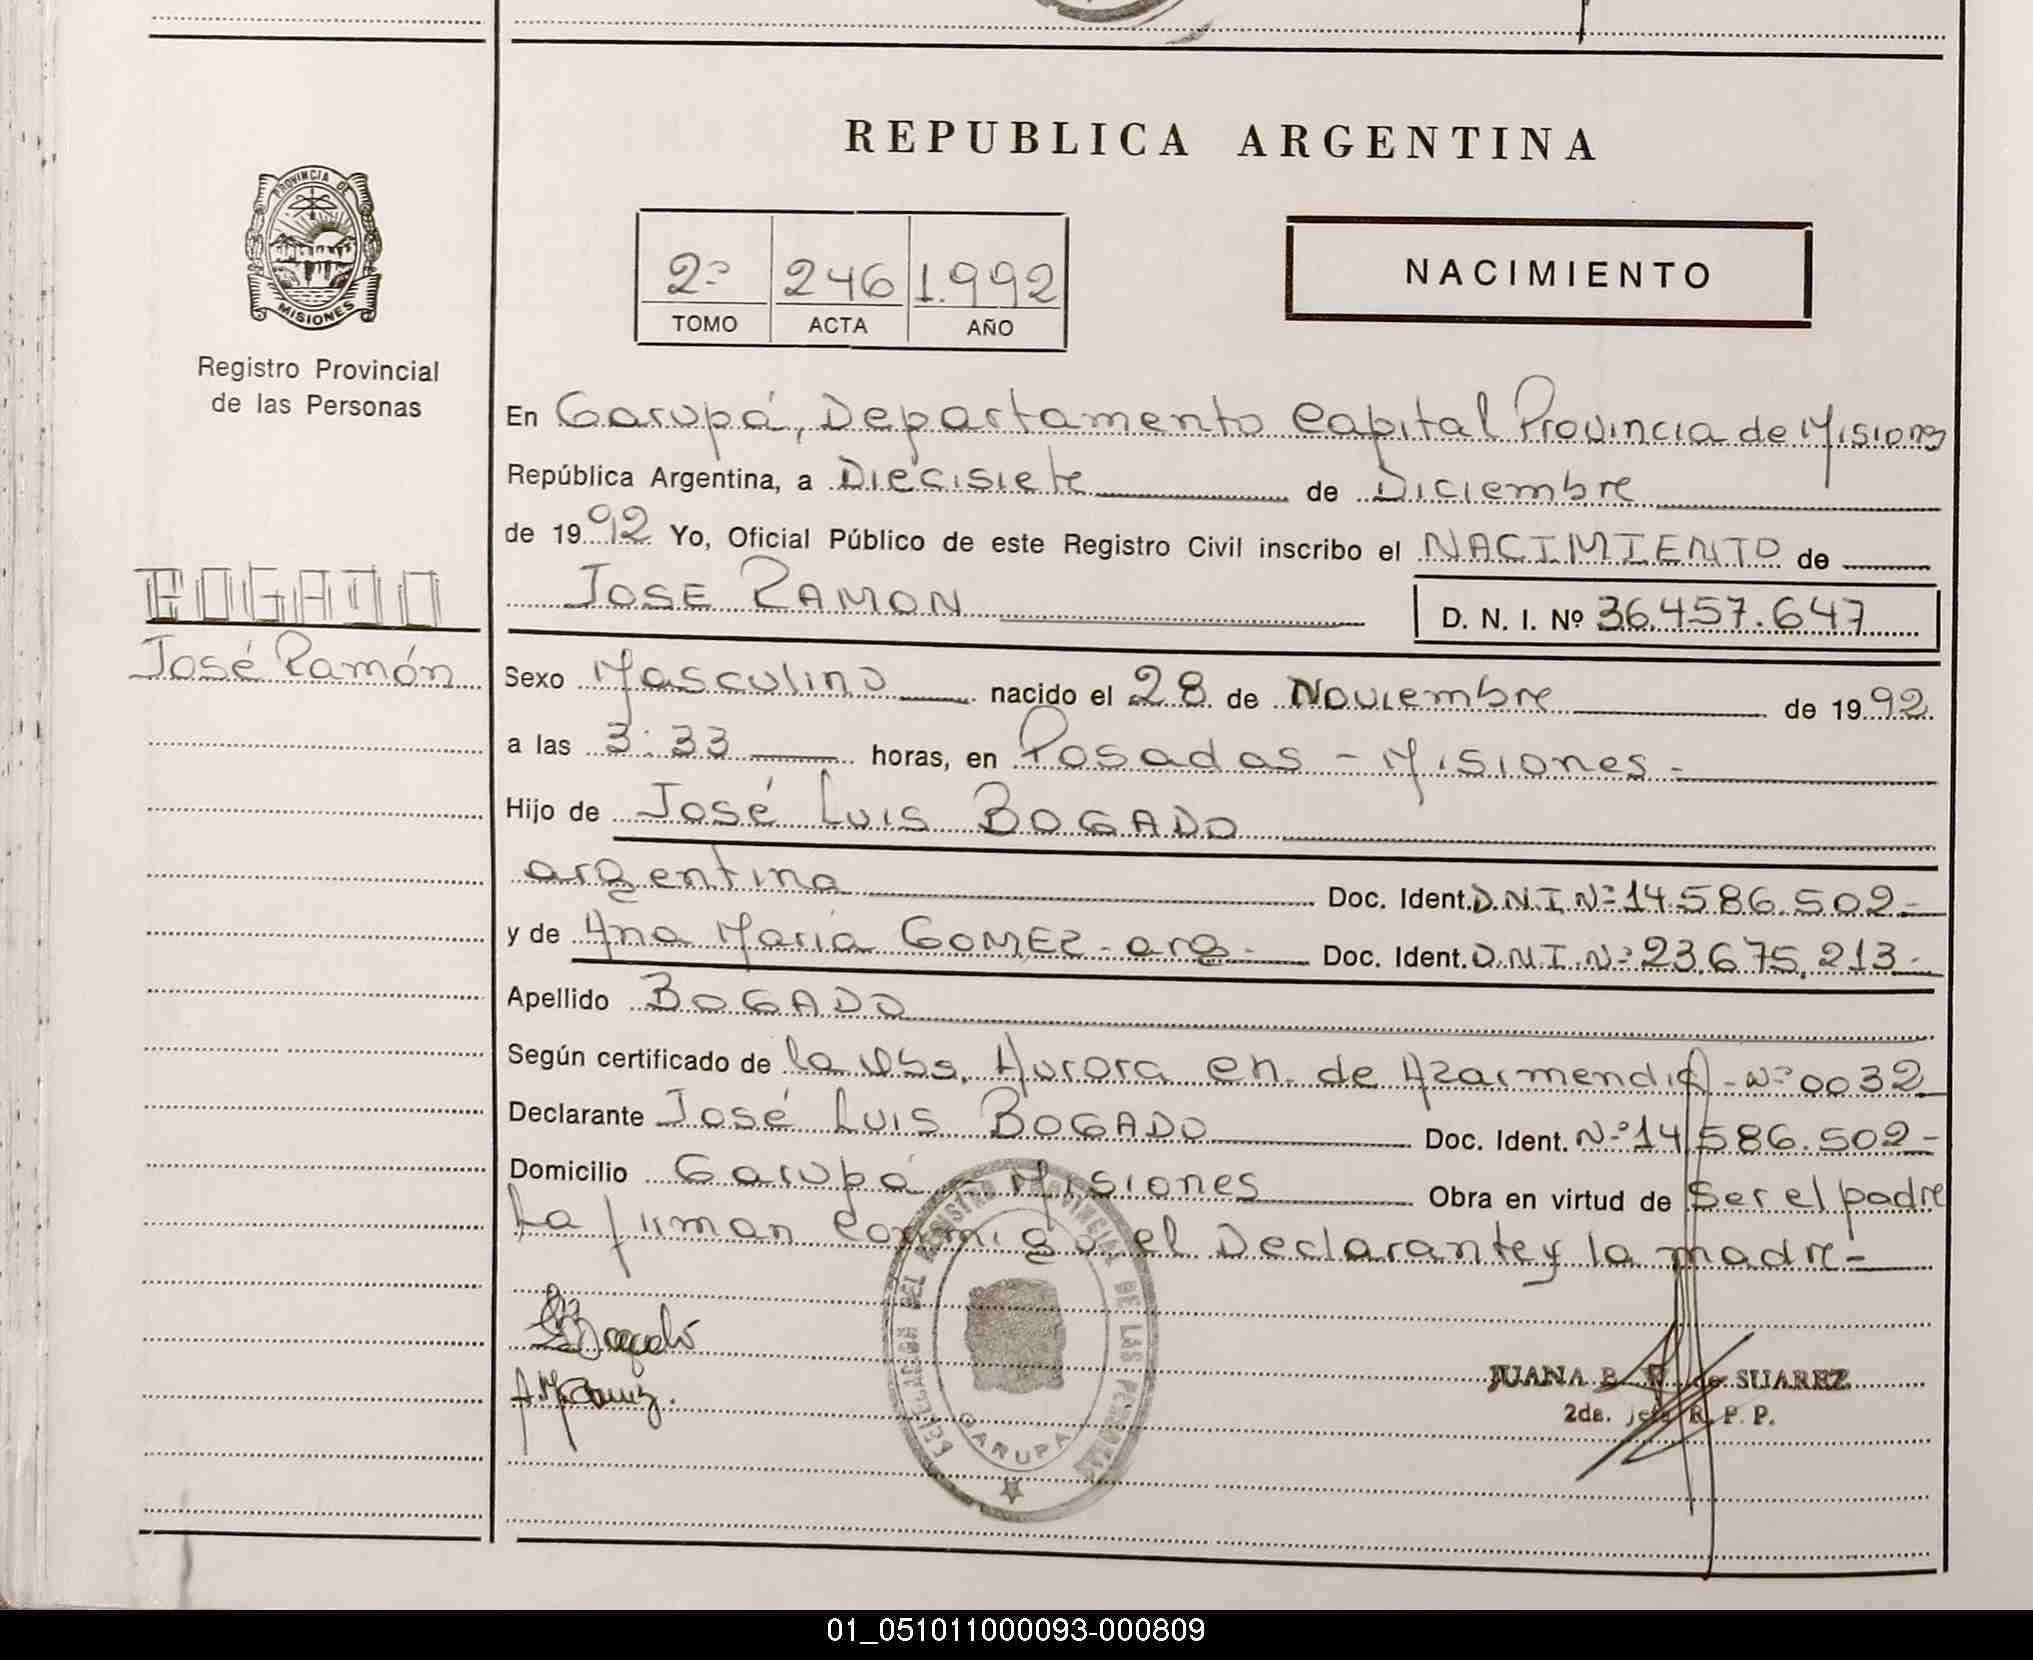 REPUBLICA ARGENTINA
PROVINCIA DE
MISIONES
Registro Provincial
de las Personas
2º 246 1.992
TOMO ACTA AÑO
NACIMIENTO
En Garupá, Departamento Capital Provincia de Misiones
República Argentina, a Diecisiete de Diciembre
de 1992 Yo, Oficial Público de este Registro Civil inscribo el NACIMIENTO de
JOSE RAMON D. N. I. Nº 36.457.647
BOGADO
José Ramón
Sexo Masculino nacido el 28 de Noviembre de 1992.
a las 3:33 horas, en Posadas - Misiones -
Hijo de José Luis BOGADO
argentina Doc. Ident. D.N.I Nº 14.586.502-
y de Ana María GOMEZ - arg - Doc. Ident. D.N.I.Nº 23.675.213-
Apellido BOGADO
Según certificado de la Obs. Aurora en. de Azarmendia - Nº 0032
Declarante José Luis BOGADO Doc. Ident. Nº 14.586.502-
Domicilio Garupá - Misiones Obra en virtud de Ser el padre
La firman conmigo el Declarante y la madre-
DELEGACION DEL REGISTRO PROVINCIAL DE LAS PERSONAS
GARUPA
JUANA B. de SUAREZ
2da. jefe R. P. P.
01_051011000093-000809